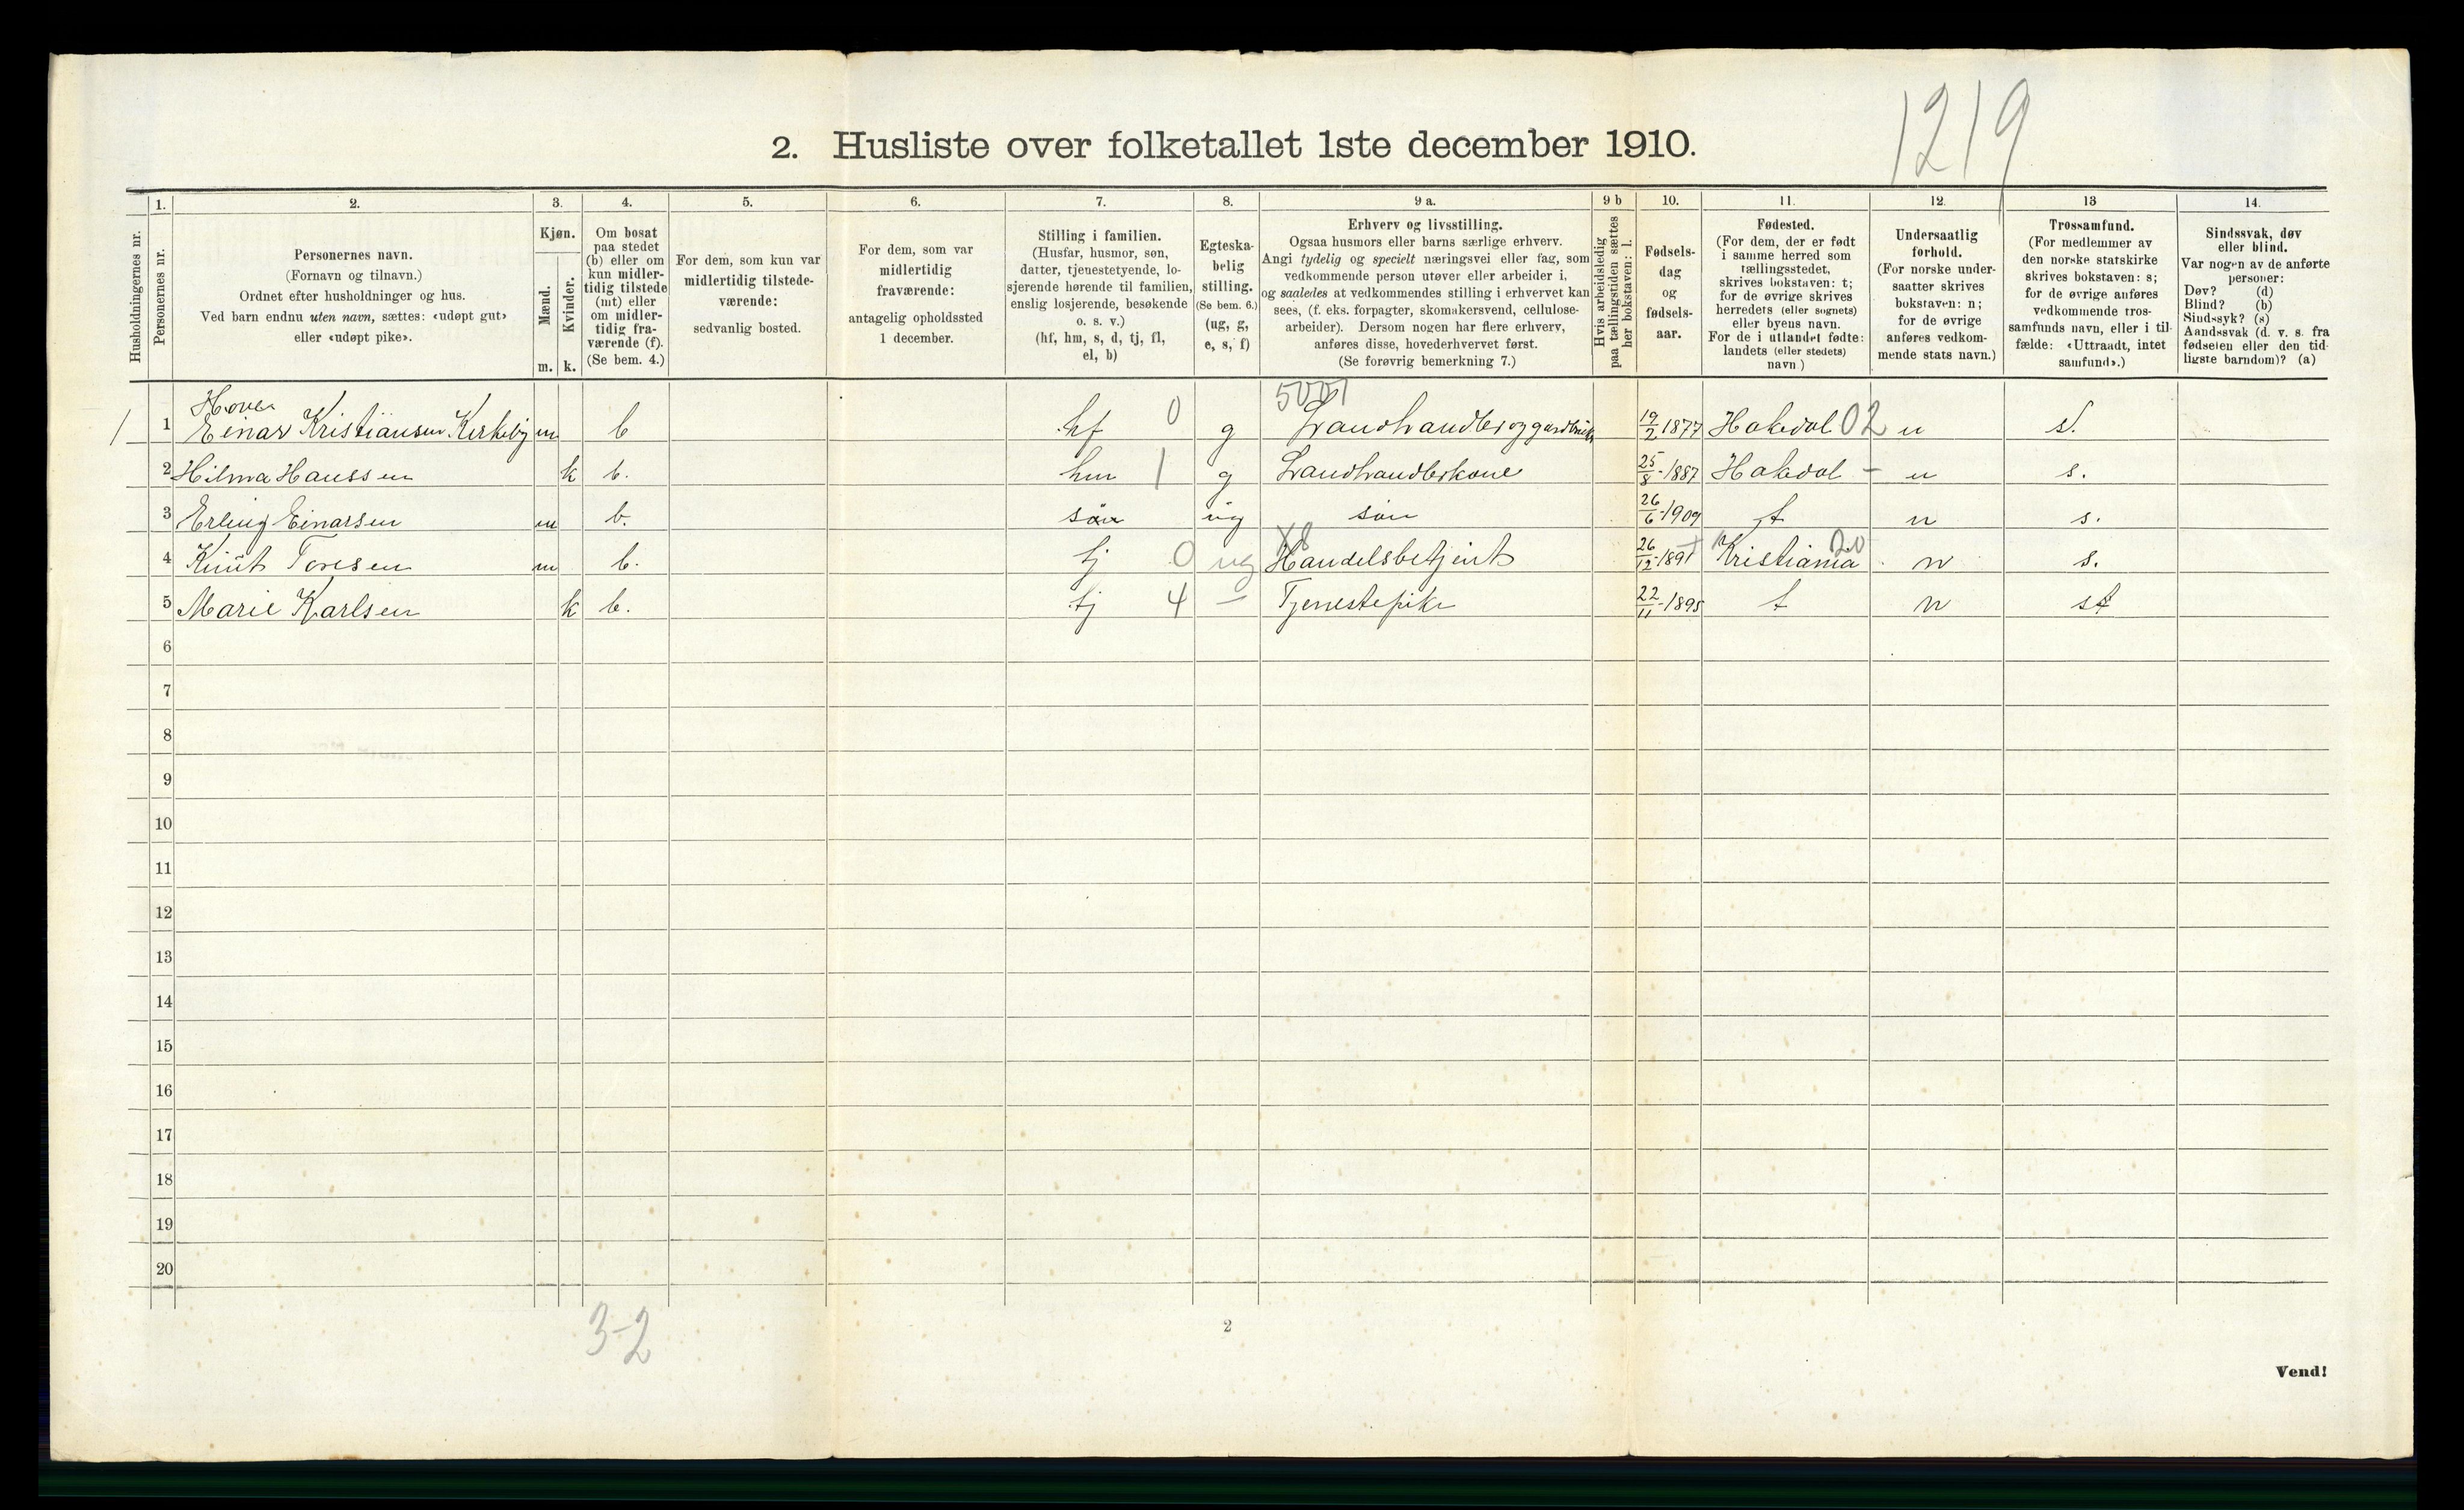 1219
2. Husliste over folketallet 1ste december 1910.
1. 2. 3. 4. 5. 6. 7. 8. 9 a. 9 b 10. 11. 12. 13 14.
Husholdningernes nr.
Personernes nr.
Personernes navn.
(Fornavn og tilnavn.)
Ordnet efter husholdninger og hus.
Ved barn endnu uten navn, sættes: «udøpt gut»
eller «udøpt pike».
Kjøn.
Mænd.
Kvinder.
m. k.
Om bosat
paa stedet
(b) eller om
kun midler-
tidig tilstede
(mt) eller
om midler-
tidig fra-
værende (f).
(Se bem. 4.)
For dem, som kun var
midlertidig tilstede-
værende:
sedvanlig bosted.
For dem, som var
midlertidig
fraværende:
antagelig opholdssted
1 december.
Stilling i familien.
(Husfar, husmor, søn,
datter, tjenestetyende, lo-
sjerende hørende til familien,
enslig losjerende, besøkende
o. s. v.)
(hf, hm, s, d, tj, fl,
el, b)
Egteska-
belig
stilling.
(Se bem. 6.)
(ug, g,
e, s, f)
Erhverv og livsstilling.
Ogsaa husmors eller barns særlige erhverv.
Angi tydelig og specielt næringsvei eller fag, som
vedkommende person utøver eller arbeider i,
og saaledes at vedkommendes stilling i erhvervet kan
sees, (f. eks. forpagter, skomakersvend, cellulose-
arbeider). Dersom nogen har flere erhverv,
anføres disse, hovederhvervet først.
(Se forøvrig bemerkning 7.)
Hvis arbeidsledig
paa tællingstiden sættes
her bokstaven: l.
Fødsels-
dag
og
fødsels-
aar.
Fødested.
(For dem, der er født
i samme herred som
tællingsstedet,
skrives bokstaven: t;
for de øvrige skrives
herredets (eller sognets)
eller byens navn.
For de i utlandet fødte:
landets (eller stedets)
navn.)
Undersaatlig
forhold.
(For norske under-
saatter skrives
bokstaven: n;
for de øvrige
anføres vedkom-
mende stats navn.)
Trossamfund.
(For medlemmer av
den norske statskirke
skrives bokstaven: s;
for de øvrige anføres
vedkommende tros-
samfunds navn, eller i til-
fælde: «Uttraadt, intet
samfund».)
Sindssvak, døv
eller blind.
Var nogen av de anførte
personer:
Døv? (d)
Blind? (b)
Sindssyk? (s)
Aandssvak (d. v. s. fra
fødselen eller den tid-
ligste barndom)? (a)
1 1 Einar Kristiansen Kirkeby m b hf 0 g Landhandler og gardbruk 19/2 1877 Hakedal 02 n s.
2 Hilma Hanssen k b. hm 1 g Landhandlerkone 25/8-1887 Hakedal - n s.
3 Erling Einarsen m b. sön ug sön 26/6-1909 t n s.
4 Knut Toresen m b. tj 0 ug Handelsbetjent 26/12-1891 Kristiania 20 n s.
5 Marie Karlsen k b. tj 4 - Tjenestepike 22/11-1895 t n s
6
7
8
9
10
11
12
13
14
15
16
17
18
19
20
3-2
2
Vend!